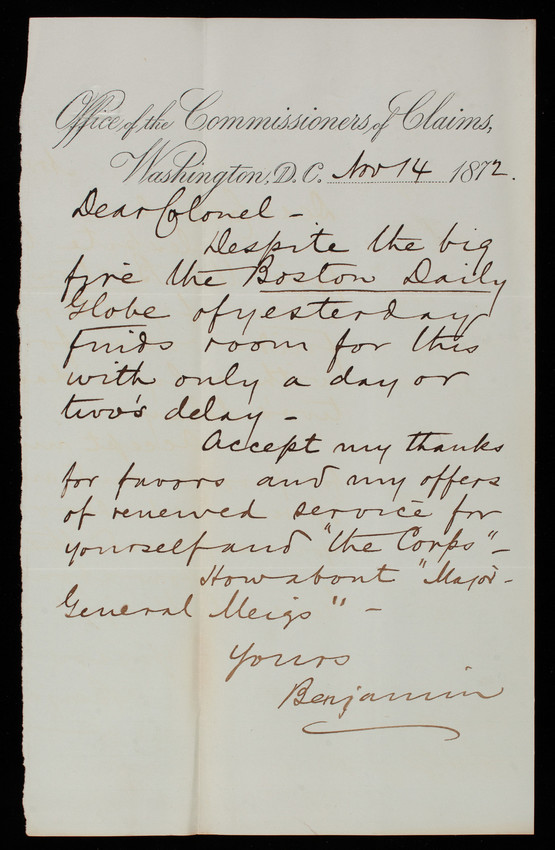 Office of the Commissioners of Claims,
Washington, D.C. Nov 14 1872.
Dear Colonel -
Despite the big
fire the Boston Daily
Globe of yesterday
finds room for this
with only a day or
two's delay -
Accept my thanks
for favors and my offers
of renewed service for
yourself and "the Corps" -
How about "Major-
General Meigs" -
Yours
Benjamin